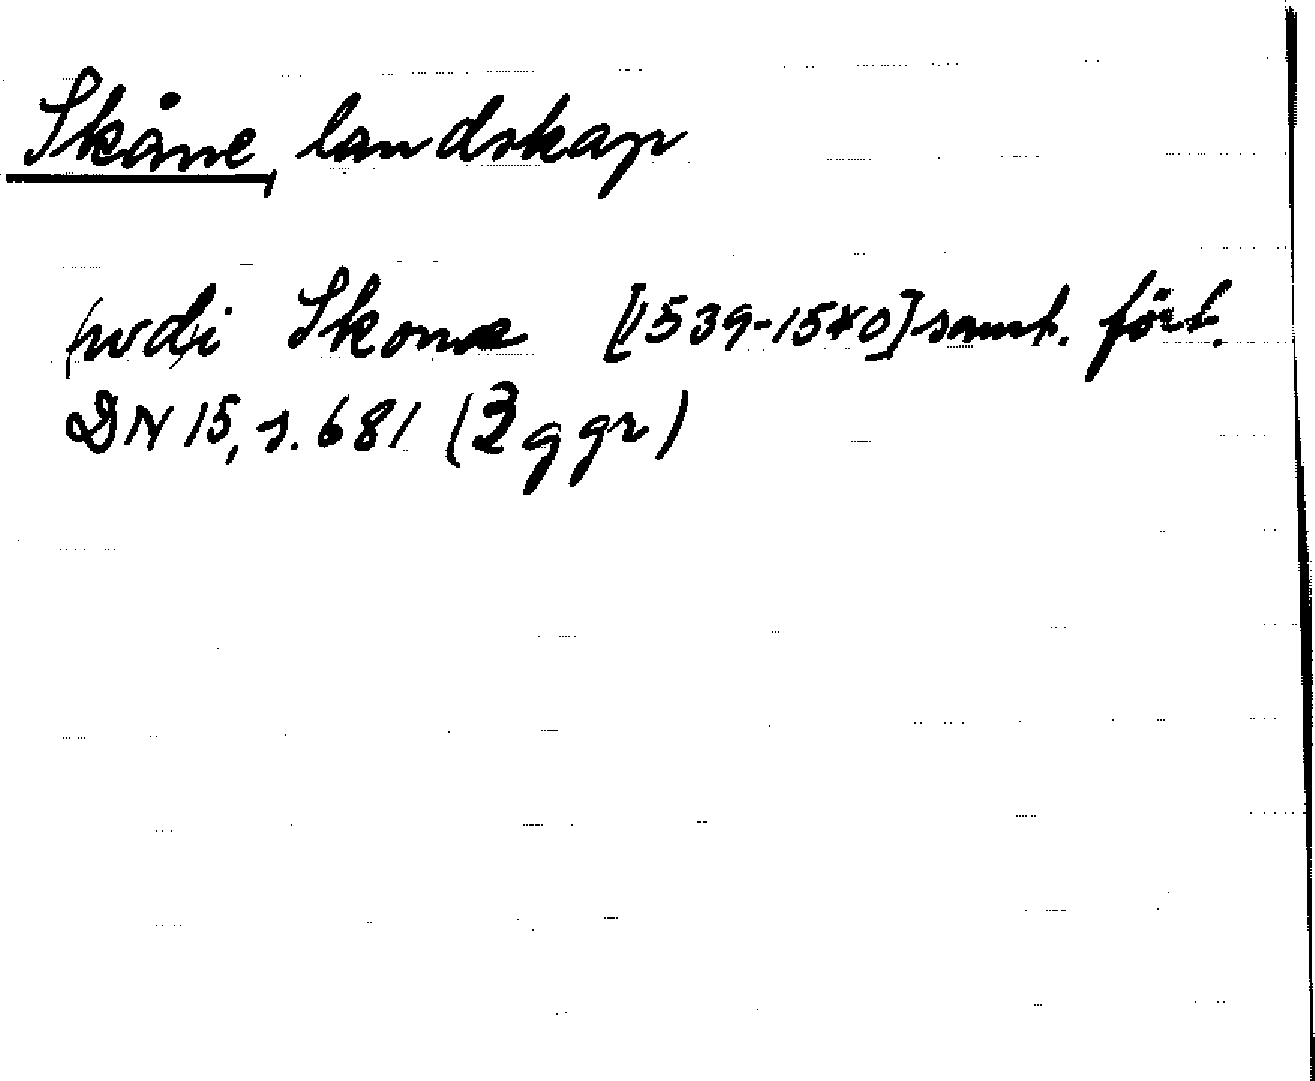 Skåne, landskap
(wdi Skonæ [1539-1540] samt. fört.
DN 15, s. 681 (3 ggr)